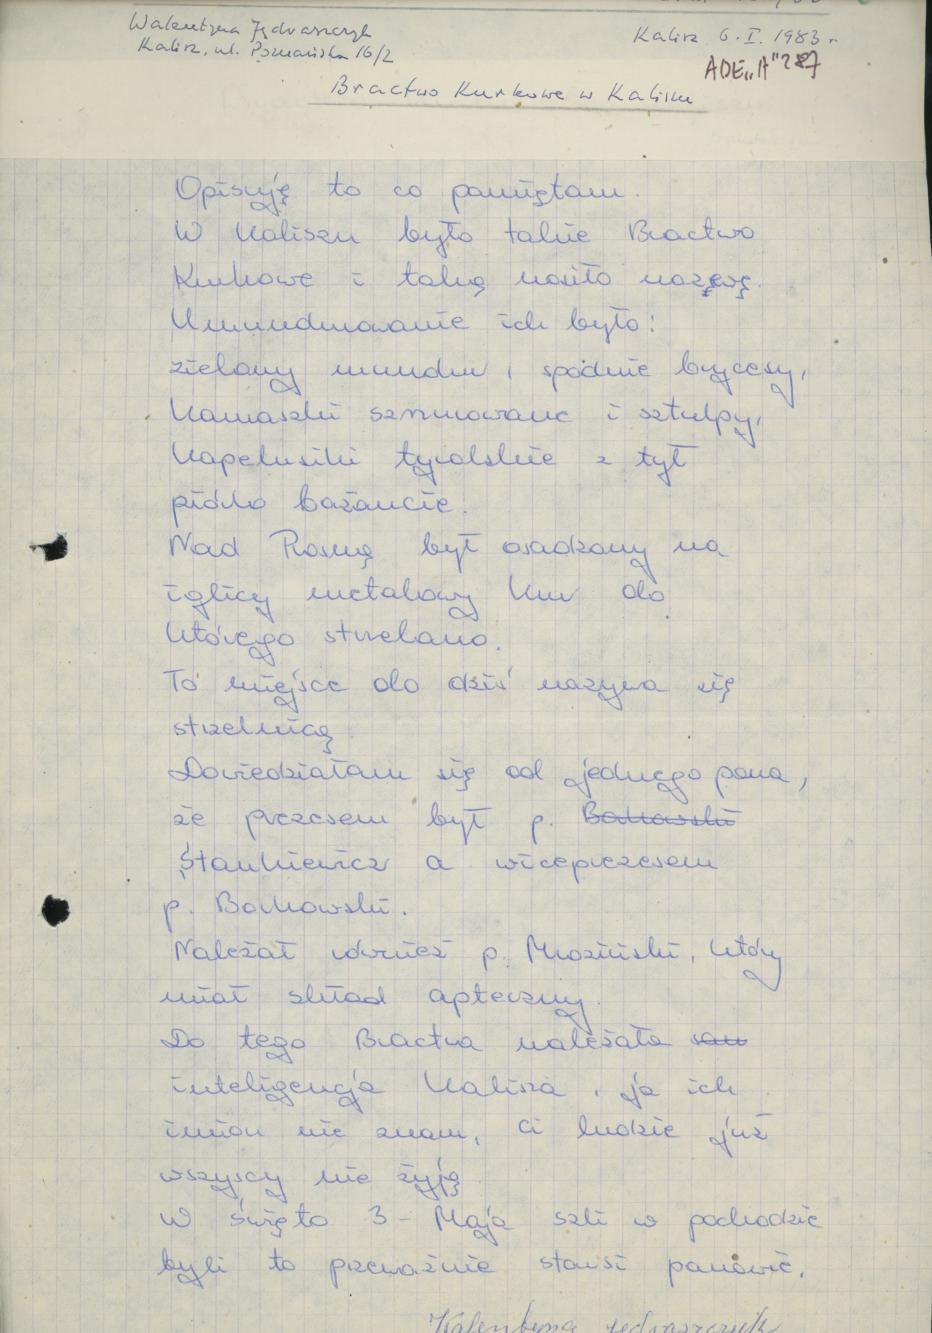 Walentyna Jędraszczyk
Kalisz, ul. Poznańska 16/2
Kalisz 6. I. 1983 r.
ADE „A" 287
Bractwo Kurkowe w Kaliszu
Opisuję to co pamiętam.
W Kaliszu było takie Bractwo
Kurkowe i taką nosiło nazwę.
Umundurowanie ich było:
zielony mundur, spodnie bryczesy,
kamaszki sznurowane i sztulpy,
kapelusiki tyrolskie z tył
piórko bażancie.
Nad Prosną był osadzony na
iglicy metalowy kur do
którego strzelano.
To miejsce do dziś nazywa się
strzelnicą
Dowiedziałam się od jednego pana,
że prezesem był p. Borkowski
Stankiewicz a wiceprezesem
p. Borkowski.
Należał również p. Mroziński, który
miał skład apteczny.
Do tego Bractwa należała sam
inteligencja Kalisza, ja ich
imion nie znam, ci ludzie już
wszyscy nie żyją
W święto 3-Maja szli w pochodzie
byli to przeważnie starsi panowie.
Walentyna Jędraszczyk